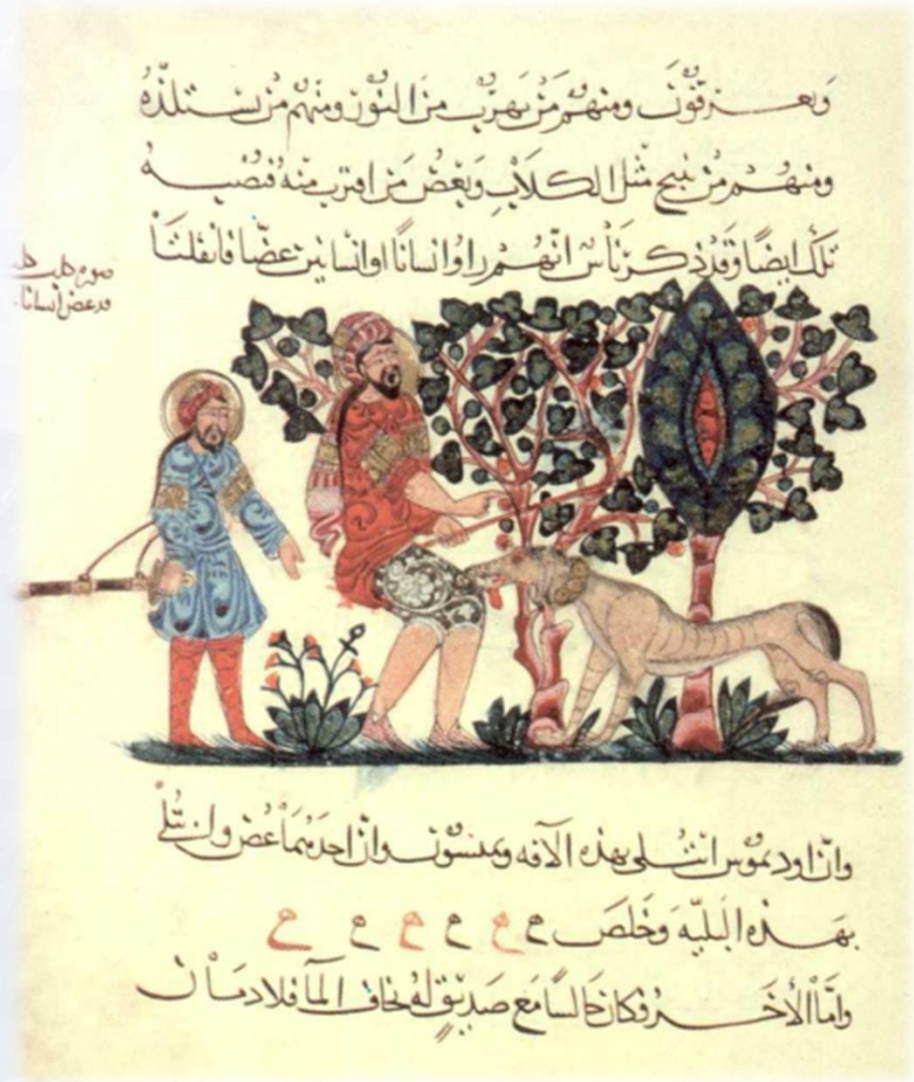 وبعـرقون ومنهم من يهرب من النور ومنهم من يستلذه
ومنهم من ينبح مثل الكلاب وبعض من اقترب منه فتصيبه
تلك ايضا وقد ذكر ناس انهم راوا انسانا او انسانين عضا فانفلتا
صورة كلب
قد عض انسانا
وان اوديموس ابتلى بهذه الآفة وان احدهما عض وابتلى
بهذه البلية وخلص ح ح ح ح ح ح
واما الأخر فكان جالسا مع صديق له يخاف الما فلا دمان